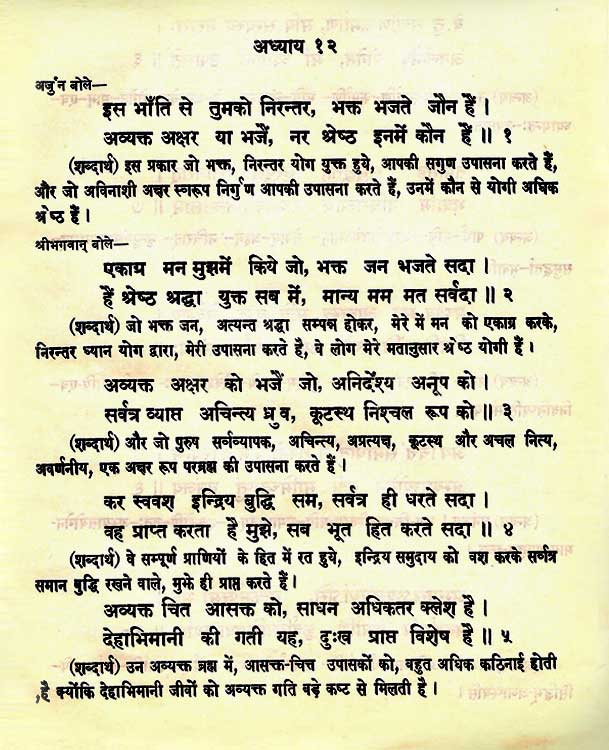 अध्याय १२
अर्जुन बोले—
इस भाँति से तुमको निरन्तर, भक्त भजते जौन हैं।
अव्यक्त अक्षर या भजैं, नर श्रेष्ठ इनमें कौन हैं॥ १
(शब्दार्थ) इस प्रकार जो भक्त, निरन्तर योग युक्त हुये, आपकी सगुण उपासना करते हैं,
और जो अविनाशी अक्षर स्वरूप निर्गुण आपकी उपासना करते हैं, उनमें कौन से योगी अधिक
श्रेष्ठ हैं।
श्रीभगवान् बोले—
एकाग्र मन मुझमें किये जो, भक्त जन भजते सदा।
हैं श्रेष्ठ श्रद्धा युक्त सब में, मान्य मम मत सर्वदा॥ २
(शब्दार्थ) जो भक्त जन, अत्यन्त श्रद्धा सम्पन्न होकर, मेरे में मन को एकाग्र करके,
निरन्तर ध्यान योग द्वारा, मेरी उपासना करते है, वे लोग मेरे मतानुसार श्रेष्ठ योगी हैं।
अव्यक्त अक्षर को भजैं जो, अनिर्देश्य अनूप को।
सर्वत्र व्याप्त अचिन्त्य ध्रुव, कूटस्थ निश्चल रूप को॥ ३
(शब्दार्थ) और जो पुरुष सर्वव्यापक, अचिन्त्य, अप्रत्यक्ष, कूटस्थ और अचल नित्य,
अवर्णनीय, एक अक्षर रूप परब्रह्म की उपासना करते हैं।
कर स्ववश इन्द्रिय बुद्धि सम, सर्वत्र ही धरते सदा।
वह प्राप्त करता है मुझे, सब भूत हित करते सदा॥ ४
(शब्दार्थ) वे सम्पूर्ण प्राणियों के हित में रत हुये, इन्द्रिय समुदाय को वश करके सर्वत्र
समान बुद्धि रखने वाले, मुझे ही प्राप्त करते हैं।
अव्यक्त चित आसक्त को, साधन अधिकतर क्लेश है।
देहाभिमानी की गती यह, दुःख प्राप्त विशेष है॥ ५
(शब्दार्थ) उन अव्यक्त ब्रह्म में, आसक्त-चित्त उपासकों को, बहुत अधिक कठिनाई होती
है क्योंकि देहाभिमानी जीवों को अव्यक्त गति बड़े कष्ट से मिलती है।